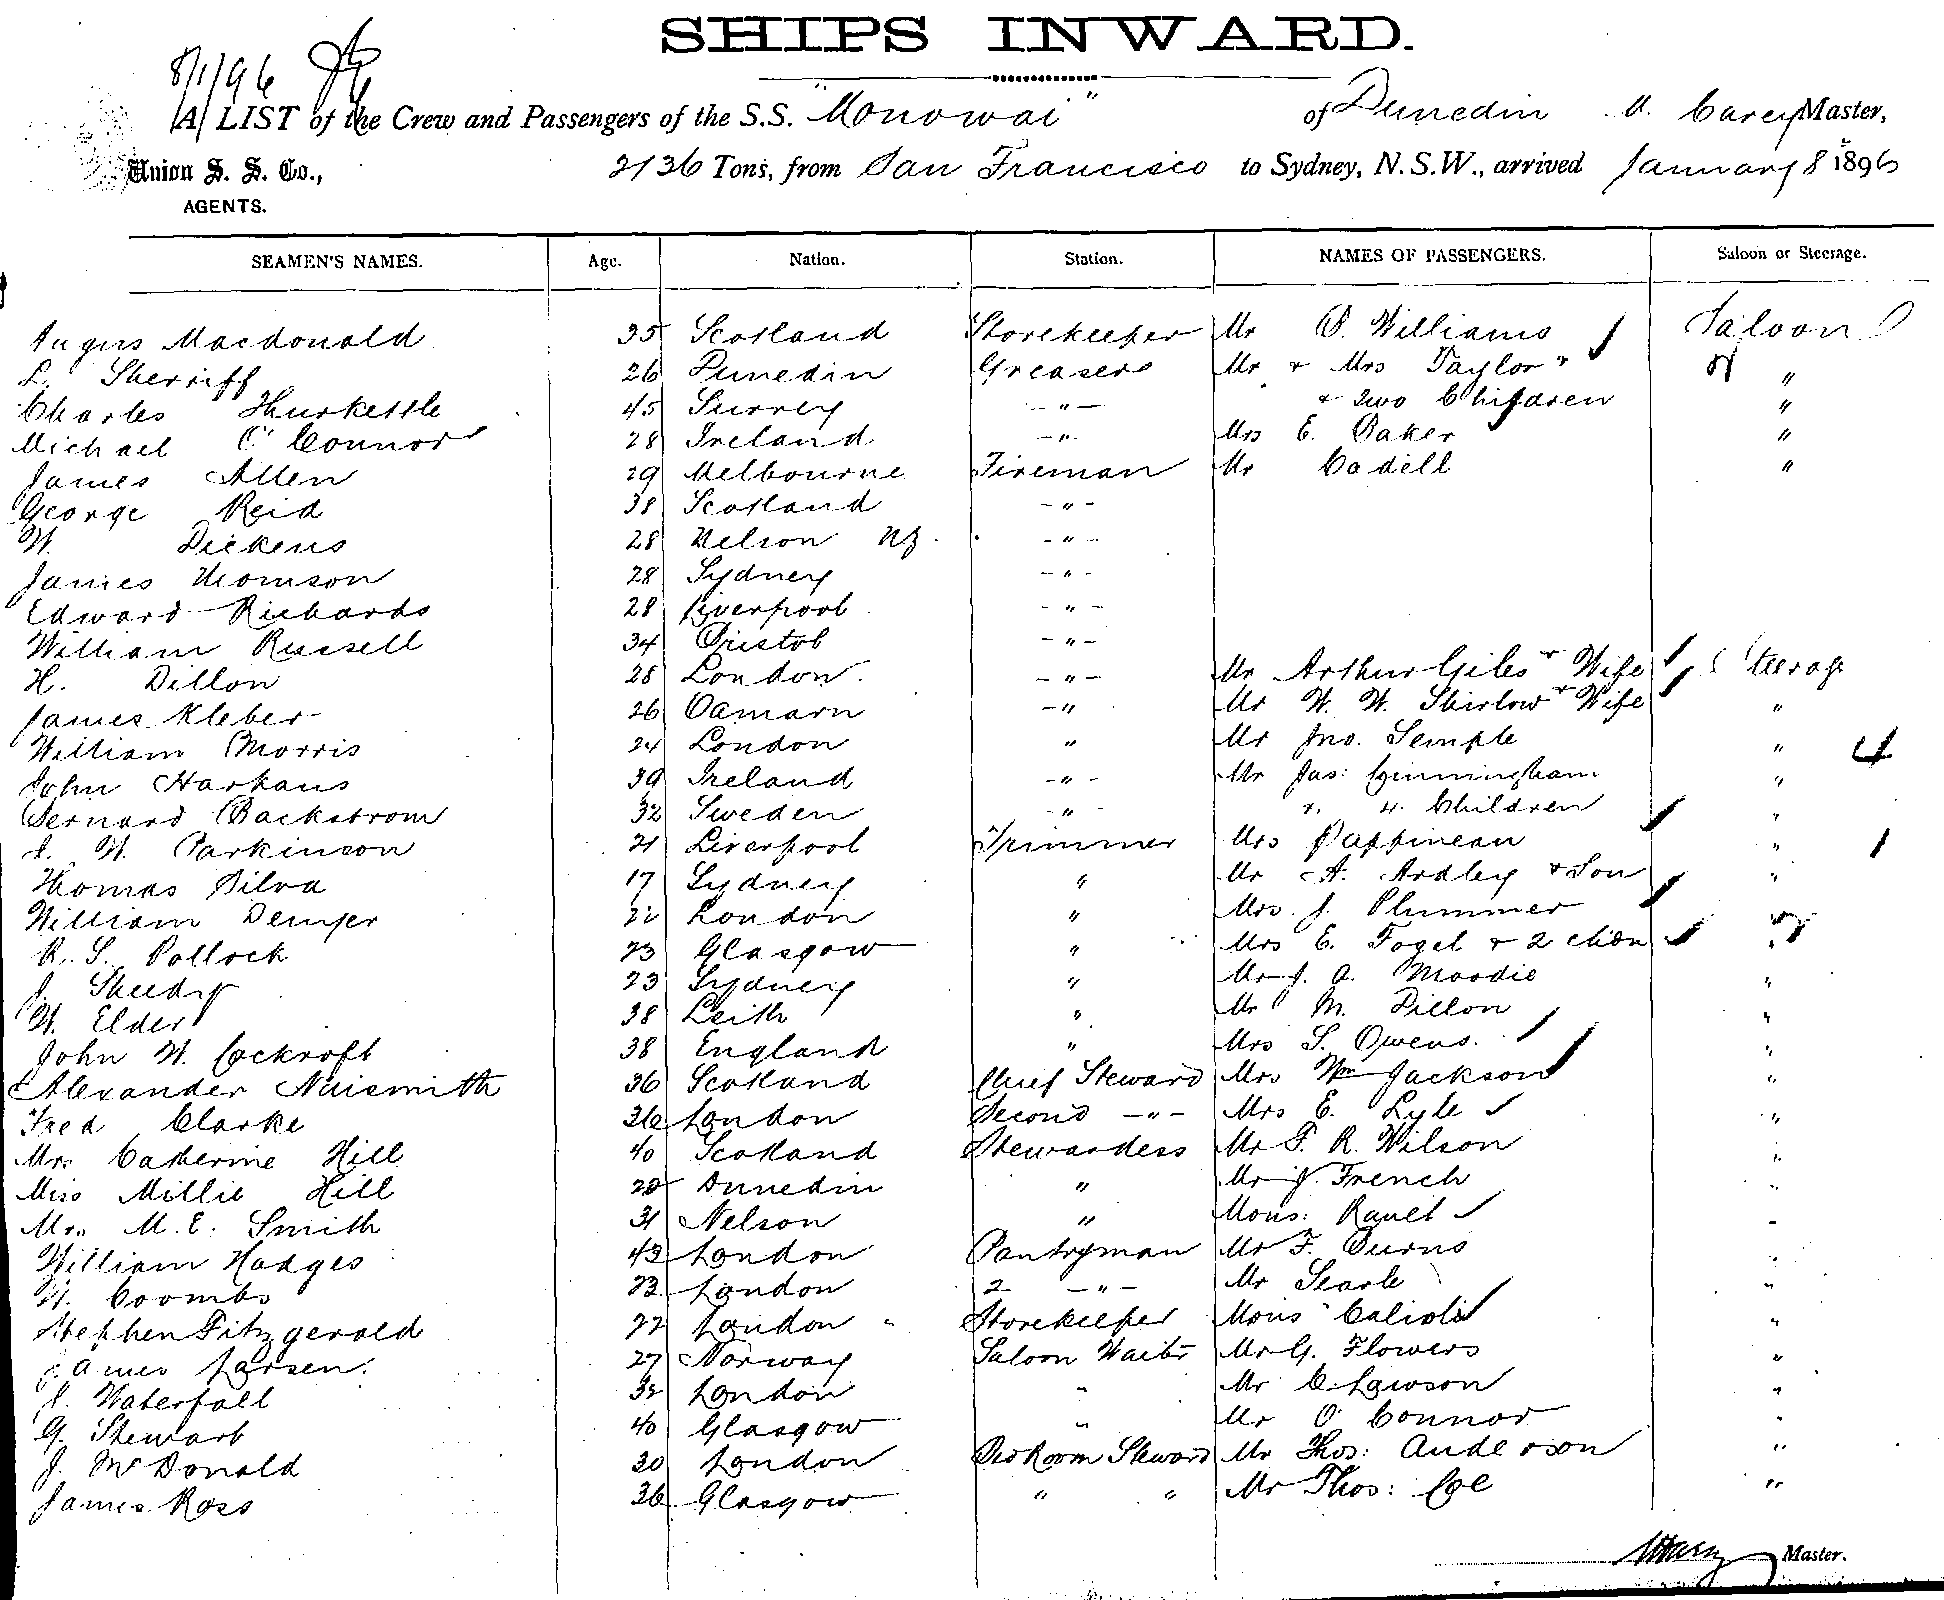 SHIPS INWARD.
8/1/96
A LIST of the Crew and Passengers of the S.S. "Monowai" of Dunedin M. Carey Master,
Union S. S. Co., 2136 Tons, from San Francisco to Sydney, N.S.W., arrived January 8 1896
AGENTS.
SEAMEN'S NAMES. Age. Nation. Station. NAMES OF PASSENGERS. Saloon or Steerage.
Angus Macdonald 35 Scotland Storekeeper Mr P. Williams Saloon
L. Sherriff 26 Dunedin Greasers Mr + Mrs Taylor + "
Charles Thurkettle 45 Surrey -"- + two Children "
Michael O'Connor 28 Ireland -"- Mrs E. Baker "
James Allen 29 Melbourne Fireman Mr Cadell "
George Reid 38 Scotland -"-
W. Dickens 28 Nelson NZ. -"-
James Thomson 28 Sydney -"-
Edward Richards 28 Liverpool -"-
William Russell 34 Bristol -"-
H. Dillon 28 London. -"- Mr Arthur Giles + Wife Steerage
James Kleber 26 Oamaru -" Mr W. W. Shirlow + Wife "
William Morris 24 London " Mr Jno. Semple " 4
John Harpans 39 Ireland -"- Mr Jas: Cunningham "
Bernard Backstrom 32 Sweden -"- + 4 Children "
J. W. Parkinson 21 Liverpool Trimmer Mrs Pappineau " 1
Thomas Silva 17 Sydney " Mr A. Ardley + Son "
William Demper 22 London " Mrs. J. Plummer
R. S. Pollock 23 Glasgow " Mrs E. Fogel + 2 chdn "
J. Sheedy 23 Sydney " Mr J. A. Moodie "
W. Elder 38 Leith " Mr M. Dillon "
John W. Cockroft 38 England " Mrs S. Owens. "
Alexander Naismith 36 Scotland Chief Steward Mrs Wm Jackson "
Fred Clarke 36 London Second -"- Mrs E. Lyle "
Mrs Catherine Hill 40 Scotland Stewardess Mr F. R. Wilson "
Miss Millie Hill 20 Dunedin " Mr J. French "
Mrs M. E. Smith 31 Nelson " Mons: Ravel "
William Hodges 43 London Pantryman Mr F. Burns "
W. Coombs 23 London 2 -"- Mr Searle "
Stephen Fitzgerald 22 London Storekeeper Mons Calioli "
James Larsen. 27 Norway Saloon Waiter Mr G. Flowers "
J. Waterfall 32 London " Mr C. Lawson "
G. Stewart 40 Glasgow " Mr O'Connor "
J. McDonald 30 London Bed Room Steward Mr Thos: Anderson "
James Ross 36 Glasgow " " Mr Thos: Coe "
MCarey Master.